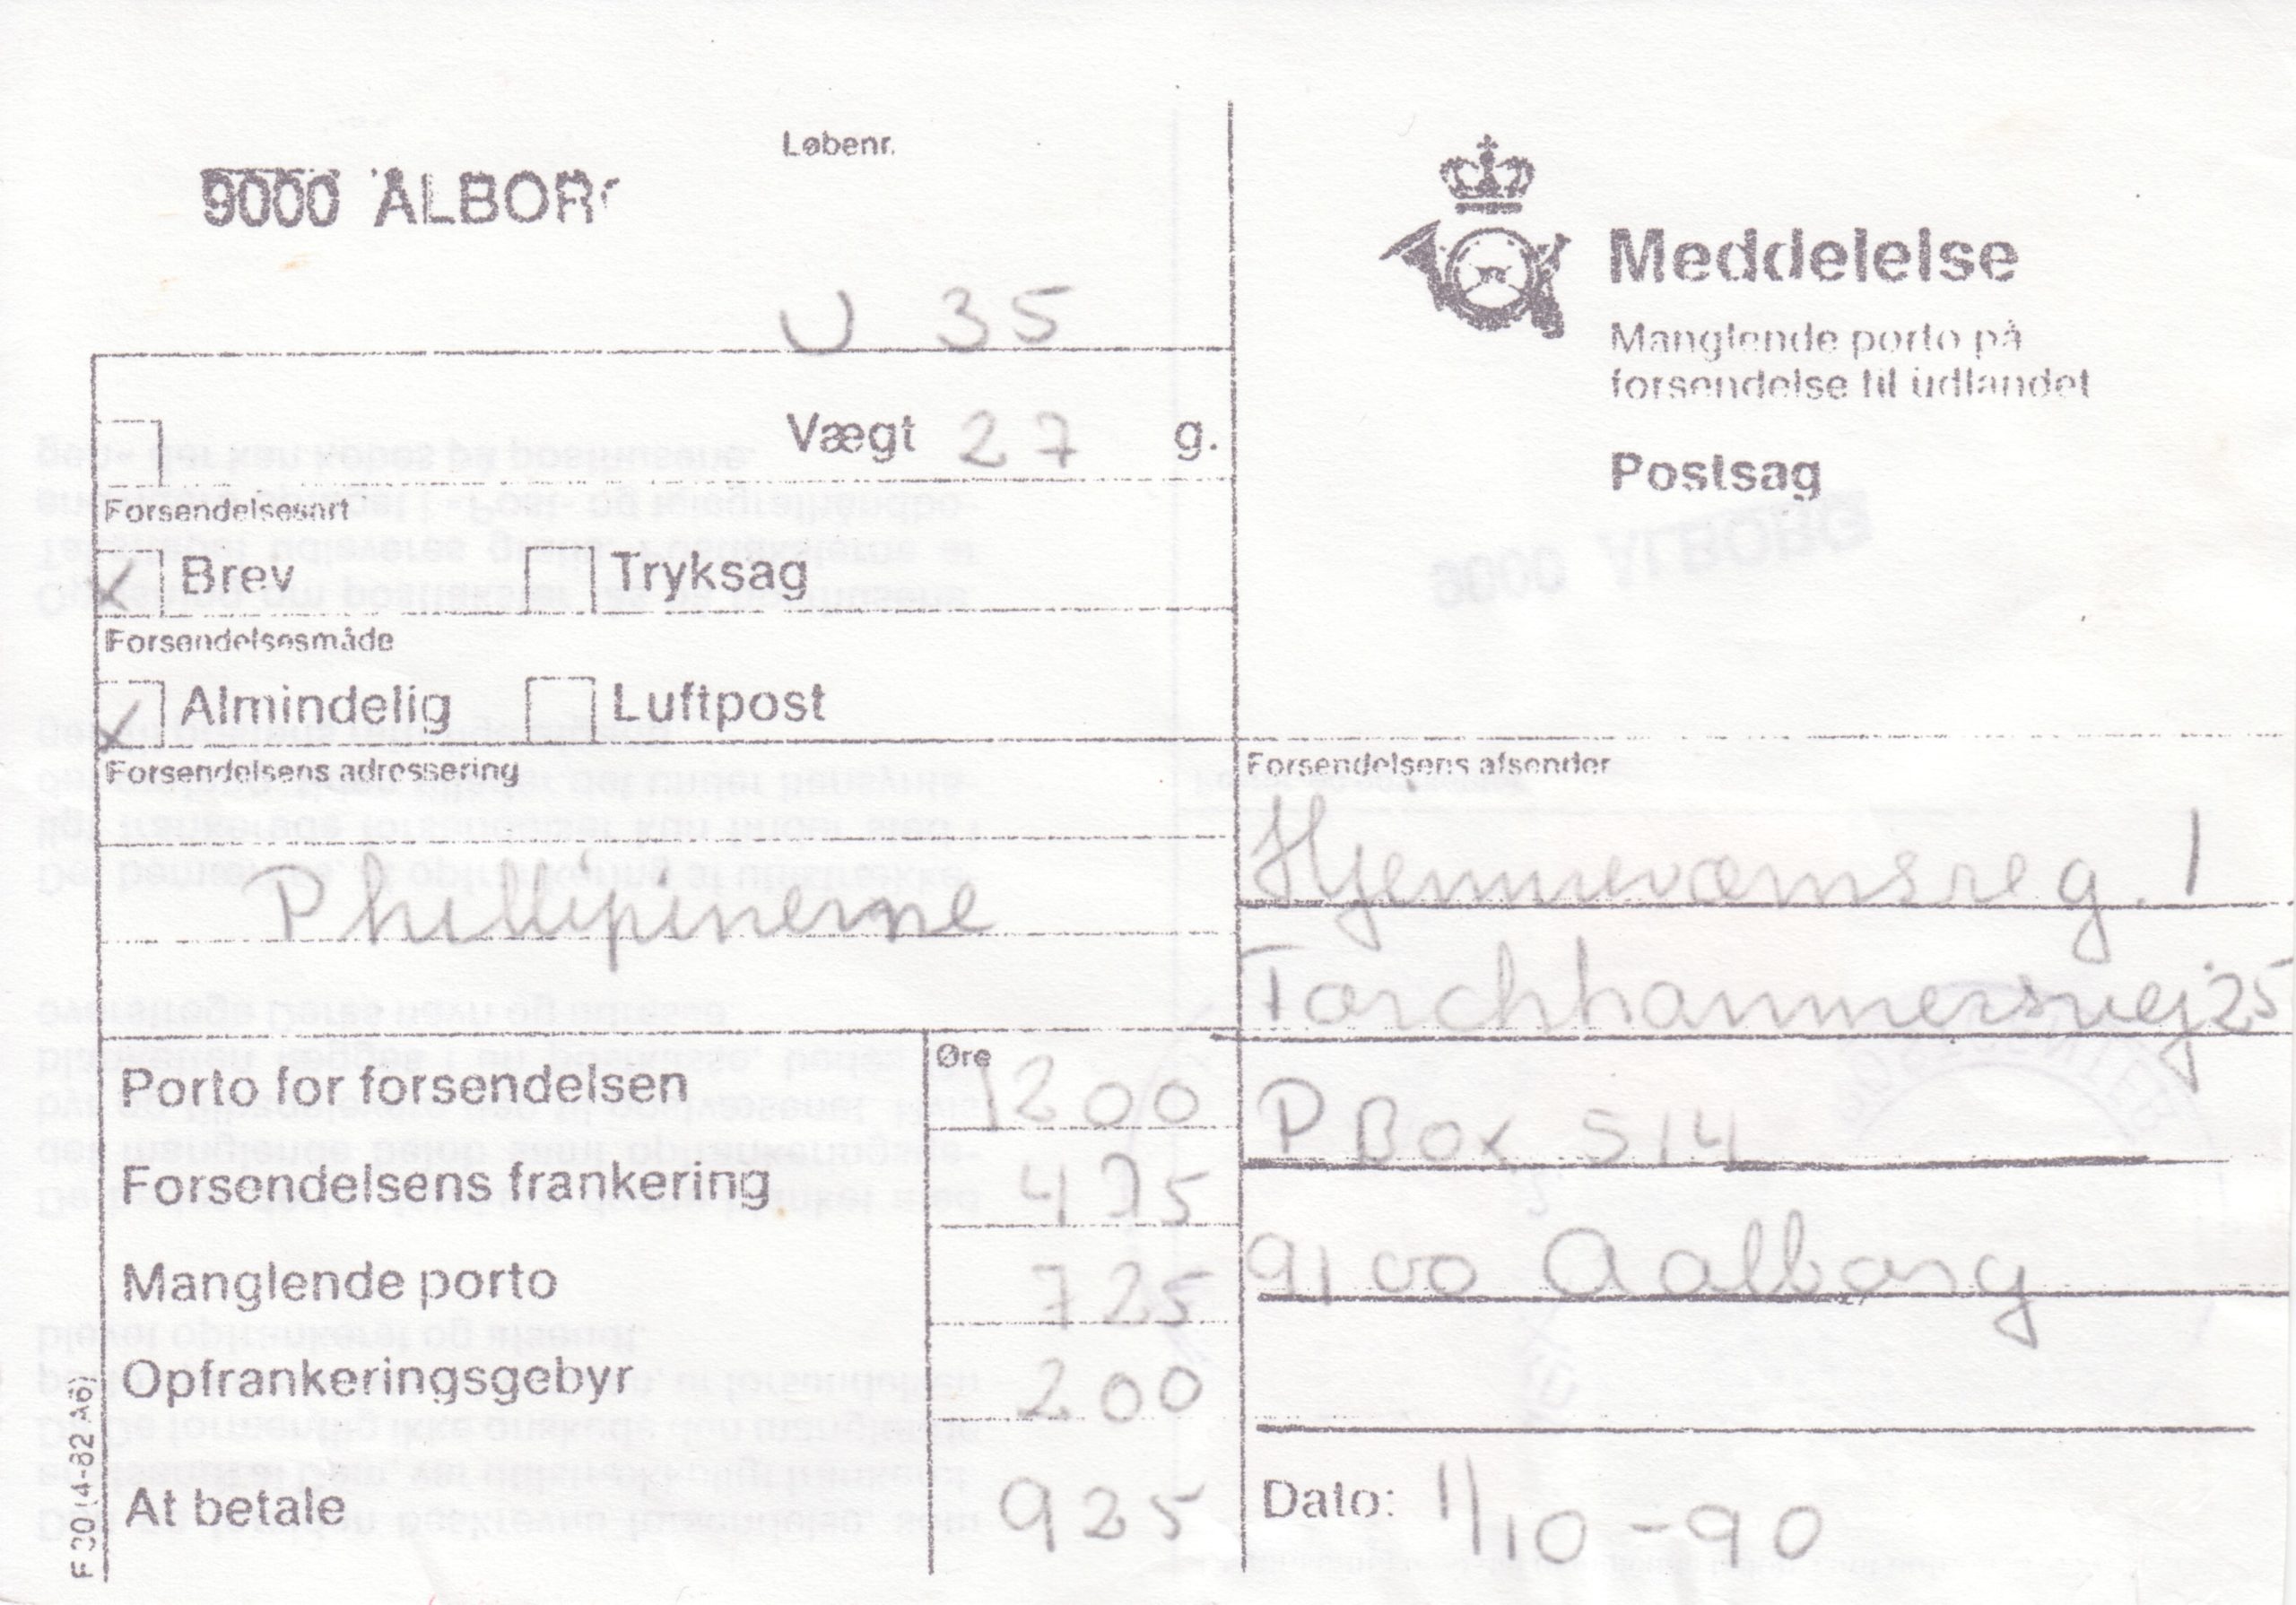 Løbenr.
9000 ALBOR
U 35
Vægt 27 g.
Forsendelsesart
Brev
Tryksag
Forsendelsesmåde
Almindelig
Luftpost
Forsendelsens adressering
Phillipinerne
Øre
Porto for forsendelsen 1200
Forsendelsens frankering 475
Manglende porto 725
Opfrankeringsgebyr 200
At betale 925
F 30 (4-82 A6)
Meddelelse
Manglende porto på
forsendelse til udlandet
Postsag
9000 ALBORG
Forsendelsens afsender
Hjemmeværnsreg. 1
Forchhammersvej 25
P Box 514
9100 Aalborg
Dato: 1/10-90